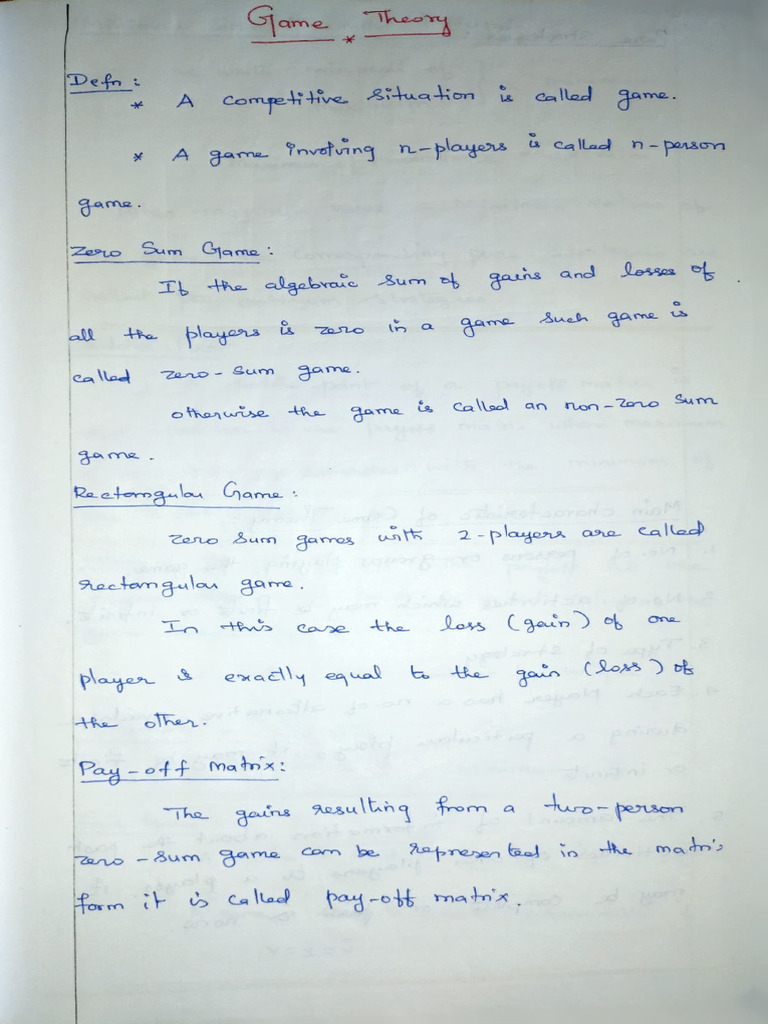 Game * Theory
Defn:
* A competitive situation is called game.
* A game involving n-players is called n-person
game.
Zero Sum Game:
If the algebraic sum of gains and losses of
all the players is zero in a game such game is
called zero-sum game.
Otherwise the game is called an non-zero sum
game.
Rectangular Game:
Zero sum games with 2-players are called
rectangular game.
In this case the loss (gain) of one
player is exactly equal to the gain (loss) of
the other.
Pay-off matrix:
The gains resulting from a two-person
zero-sum game can be represented in the matrix
form it is called pay-off matrix.